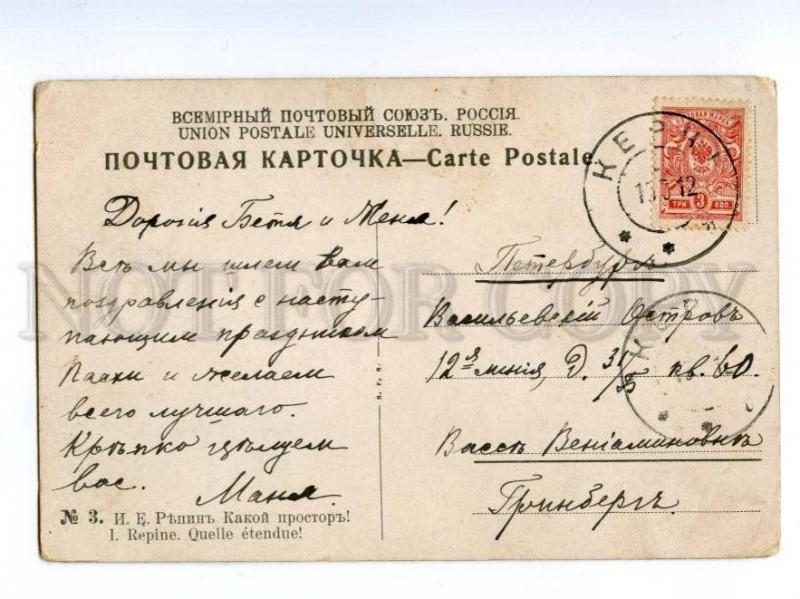 ВСЕМІРНЫЙ ПОЧТОВЫЙ СОЮЗЪ. РОССІЯ.
UNION POSTALE UNIVERSELLE. RUSSIE.
ПОЧТОВАЯ КАРТОЧКА—Carte Postale
КЕРЧЬ
ТРИ 3 КОП.
Дорогія Бетя и Женя!
Всѣ мы шлемъ вам
поздравленія с насту-
пающим праздником
Пасхи и желаем
всего лучшаго.
Крѣпко цѣлуем
вас.
Маня.
Петербургъ
Васильевскій Островъ
12ая линія, Д. 31/ кв. 60.
Вассѣ Веніаминовнѣ
Гринбергъ.
№ 3. И. Е. Рѣпинъ Какой просторъ!
I. Repine. Quelle étendue!
NOT FOR COPY